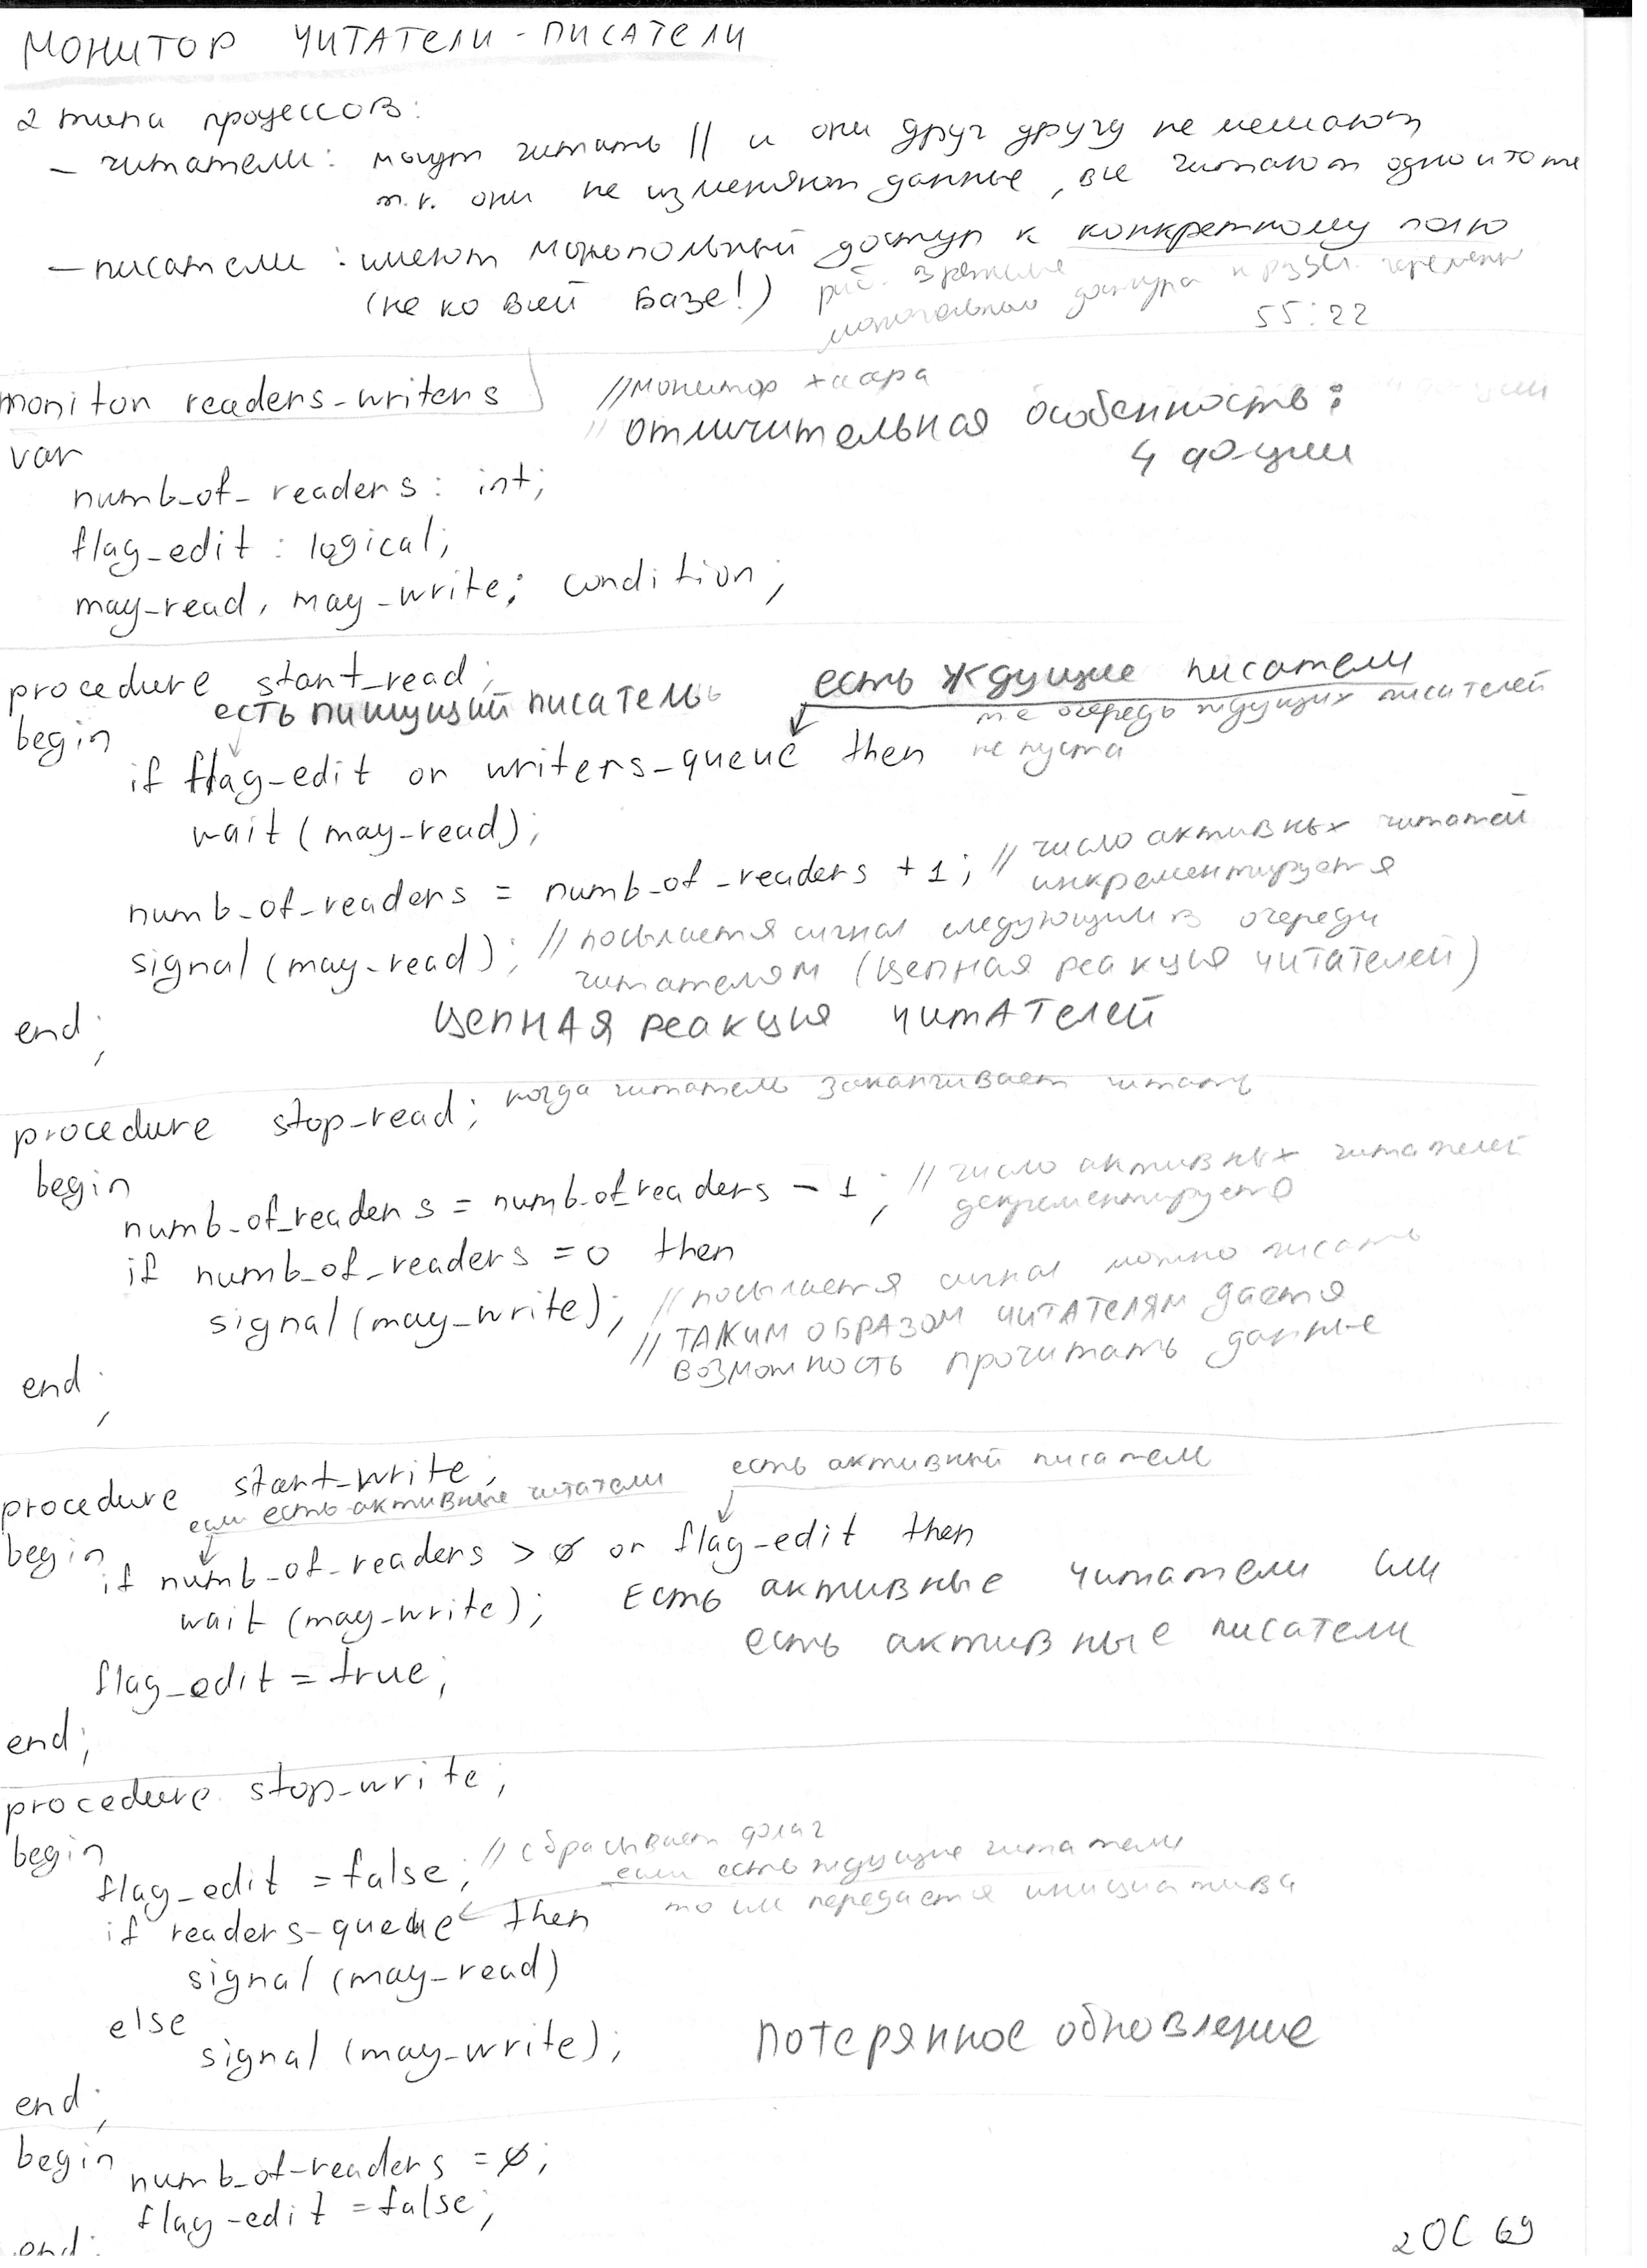 МОНИТОР ЧИТАТЕЛИ-ПИСАТЕЛИ
2 типа процессов:
- читатели: могут читать || и они друг другу не мешают
т.к. они не изменяют данные, все читают одно и то же
- писатели: имеют монопольный доступ к конкретному полю
(не ко всей базе!) раб. в режиме
монопольного доступа к разд. переменн
55:22
monitor readers-writers //монитор Хоара
// отличительная особенность:
var
4 ф-ции
numb_of_readers: int;
flag_edit: logical;
may_read, may_write: condition;
procedure start_read;
есть пишущий писатель
есть ждущие писатели
т е очередь ждущих писателей
не пуста
begin
if flag_edit or writers_queue then
wait(may_read);
numb_of_readers = numb_of_readers + 1; // число активных читатей
инкрементируется
signal(may_read); // посылается сигнал следующим в очереди
читателям (цепная реакция читателей)
end; цепная реакция читателей
procedure stop_read; когда читатель заканчивает читать
begin
numb_of_readers = numb_of_readers - 1; // число активных читателей
декрементируется
if numb_of_readers = 0 then
signal(may_write); // посылается сигнал можно писать
// ТАКИМ ОБРАЗОМ ЧИТАТЕЛЯМ дается
возможность прочитать данные
end;
procedure start_write;
если есть активные читатели
есть активный писатель
begin
if numb_of_readers > 0 or flag_edit then
wait(may_write); Есть активные читатели или
есть активные писатели
flag_edit = true;
end;
procedure stop_write;
begin
flag_edit = false; // сбрасывает флаг
если есть ждущие читатели
то им передается инициатива
if readers-queue then
signal(may_read)
else
signal(may_write); потерянное обновление
end;
begin
numb_of_readers = 0;
flag-edit = false;
end;
2ОС 69